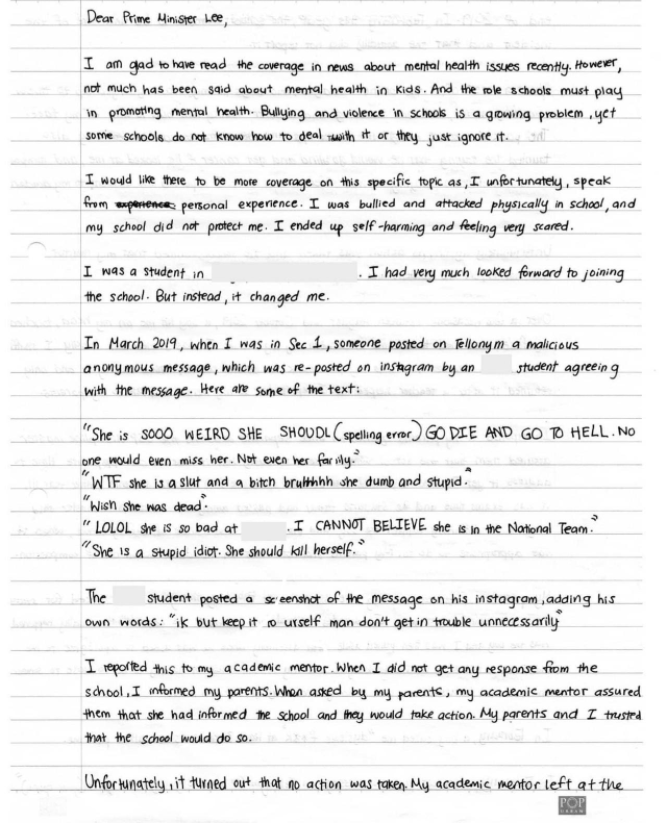 Dear Prime Minister Lee,
I am glad to have read the coverage in news about mental health issues recently. However,
not much has been said about mental health in kids. And the role schools must play
in promoting mental health. Bullying and violence in schools is a growing problem, yet
some schools do not know how to deal with it or they just ignore it.
I would like there to be more coverage on this specific topic as, I unfortunately, speak
from personal experience. I was bullied and attacked physically in school, and
my school did not protect me. I ended up self-harming and feeling very scared.
I was a student in . I had very much looked forward to joining
the school. But instead, it changed me.
In March 2019, when I was in Sec 1, someone posted on Tellonym a malicious
anonymous message, which was re-posted on instagram by an student agreeing
with the message. Here are some of the text:
"She is SOOO WEIRD SHE SHOUDL (spelling error) GO DIE AND GO TO HELL. NO
one would even miss her. Not even her family."
"WTF she is a slut and a bitch bruhhhhh she dumb and stupid."
"Wish she was dead."
"LOLOL she is so bad at . I CANNOT BELIEVE she is in the National Team."
"She is a stupid idiot. She should kill herself."
The student posted a screenshot of the message on his instagram, adding his
own words: "ik but keep it to urself man don't get in trouble unnecessarily"
I reported this to my academic mentor. When I did not get any response from the
school, I informed my parents. When asked by my parents, my academic mentor assured
them that she had informed the school and they would take action. My parents and I trusted
that the school would do so.
Unfortunately, it turned out that no action was taken. My academic mentor left at the
POP